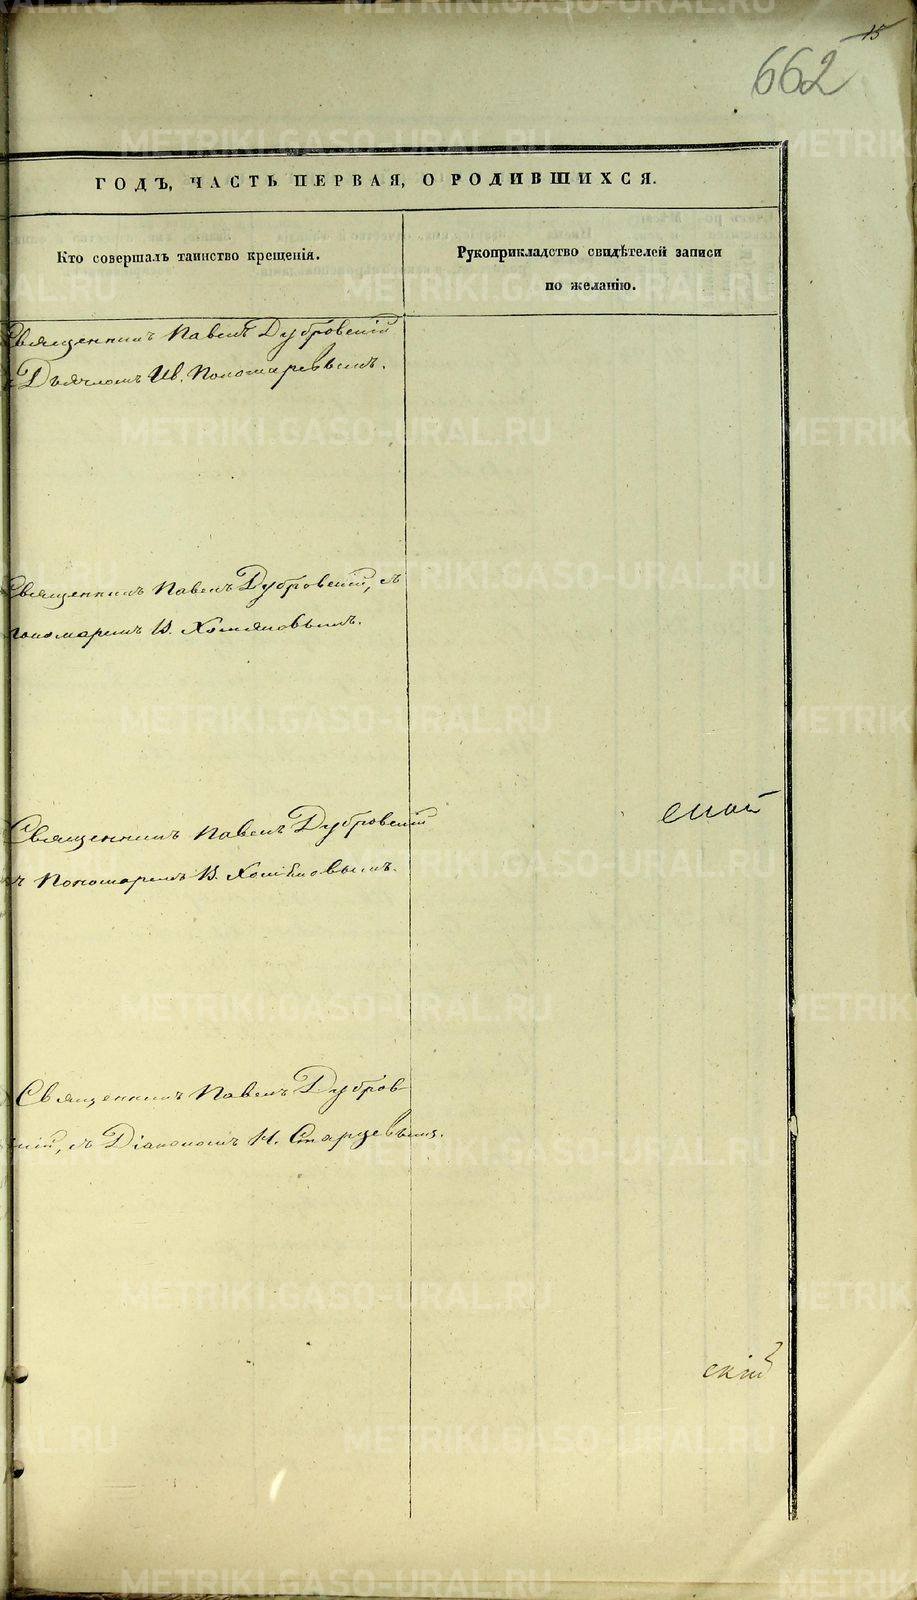 15
662
ГОДЪ, ЧАСТЬ ПЕРВАЯ, О РОДИВШИХСЯ.
Кто совершалъ таинство крещенія.
Рукоприкладство свидѣтелей записи
по желанію.
Священникъ Павелъ Дубровскій
Дьячкомъ Ив. Пономаревымъ.
Священникъ Павелъ Дубровскій, съ
пономаремъ В. Хомяковымъ.
Священникъ Павелъ Дубровскій
съ Пономаремъ В. Хомяковымъ.
ской
Священникъ Павелъ Дубров
скій, съ Діакономъ Н. Старцевымъ.
скій
METRIKI.GASO-URAL.RU